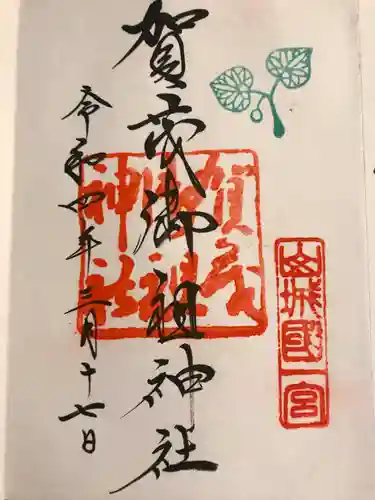 賀茂御祖神社
令和四年三月十七日
賀茂
御祖
神社
山城國一宮